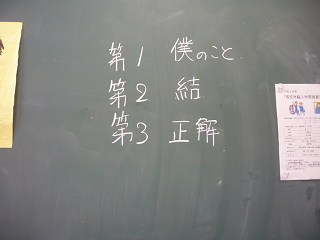 第1 僕のこと
第2 結
第3 正解